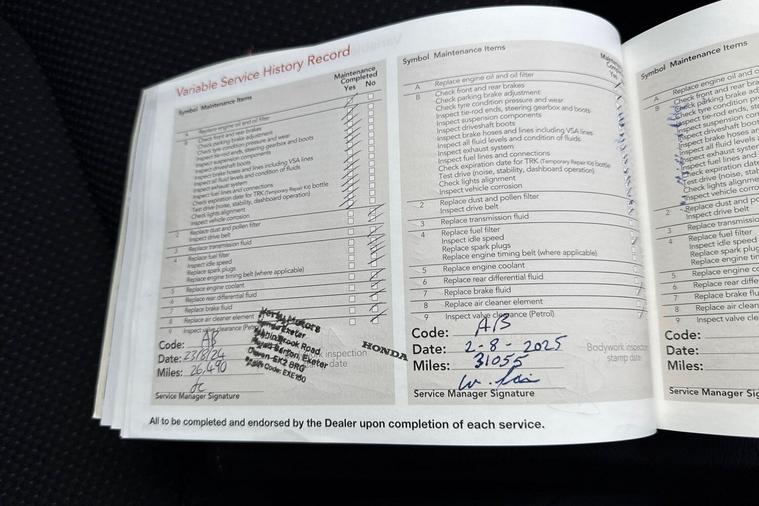 Variable Service History Record
Symbol Maintenance Items
Maintenance
Completed
Yes No
A Replace engine oil and oil filter
B Check front and rear brakes
Check parking brake adjustment
Check tyre condition pressure and wear
Inspect tie-rod ends, steering gearbox and boots
Inspect suspension components
Inspect driveshaft boots
Inspect brake hoses and lines including VSA lines
Inspect all fluid levels and condition of fluids
Inspect exhaust system
Inspect fuel lines and connections
Check expiration date for TRK (Temporary Repair Kit) bottle
Test drive (noise, stability, dashboard operation)
Check lights alignment
Inspect vehicle corrosion
2 Replace dust and pollen filter
Inspect drive belt
3 Replace transmission fluid
4 Replace fuel filter
Inspect idle speed
Replace spark plugs
Replace engine timing belt (where applicable)
5 Replace engine coolant
6 Replace rear differential fluid
7 Replace brake fluid
8 Replace air cleaner element
9 Inspect valve clearance (Petrol)
Code: AB
Date: 23/8/24
Miles: 26,490
Service Manager Signature
Motors
Exeter
Road
Exeter
EX2 8RG
Code: EXE150
inspection
date
HONDA
Symbol Maintenance Items
Yes
A Replace engine oil and oil filter
B Check front and rear brakes
Check parking brake adjustment
Check tyre condition pressure and wear
Inspect tie-rod ends, steering gearbox and boots
Inspect suspension components
Inspect driveshaft boots
Inspect brake hoses and lines including VSA lines
Inspect all fluid levels and condition of fluids
Inspect exhaust system
Inspect fuel lines and connections
Check expiration date for TRK (Temporary Repair Kit) bottle
Test drive (noise, stability, dashboard operation)
Check lights alignment
Inspect vehicle corrosion
2 Replace dust and pollen filter
Inspect drive belt
3 Replace transmission fluid
4 Replace fuel filter
Inspect idle speed
Replace spark plugs
Replace engine timing belt (where applicable)
5 Replace engine coolant
6 Replace rear differential fluid
7 Replace brake fluid
8 Replace air cleaner element
9 Inspect valve clearance (Petrol)
Code: A/B
Date: 2-8-2025
Miles: 31055
Service Manager Signature
Bodywork inspection
stamp date
All to be completed and endorsed by the Dealer upon completion of each service.
Symbol Maintenance Items
A Replace engine oil and o
B Check front and rear bra
Check parking brake ad
Check tyre condition pr
Inspect tie-rod ends, st
Inspect suspension con
Inspect driveshaft boot
Inspect brake hoses an
Inspect all fluid levels
Inspect exhaust syste
Inspect fuel lines and
Check expiration date
Test drive (noise, stal
Check lights alignme
Inspect vehicle corros
2 Replace dust and po
Inspect drive belt
3 Replace transmissio
4 Replace fuel filter
Inspect idle speed
Replace spark plug
Replace engine tim
5 Replace engine co
6 Replace rear diffe
7 Replace brake flu
8 Replace air clean
9 Inspect valve cle
Code:
Date:
Miles:
Service Manager Sig